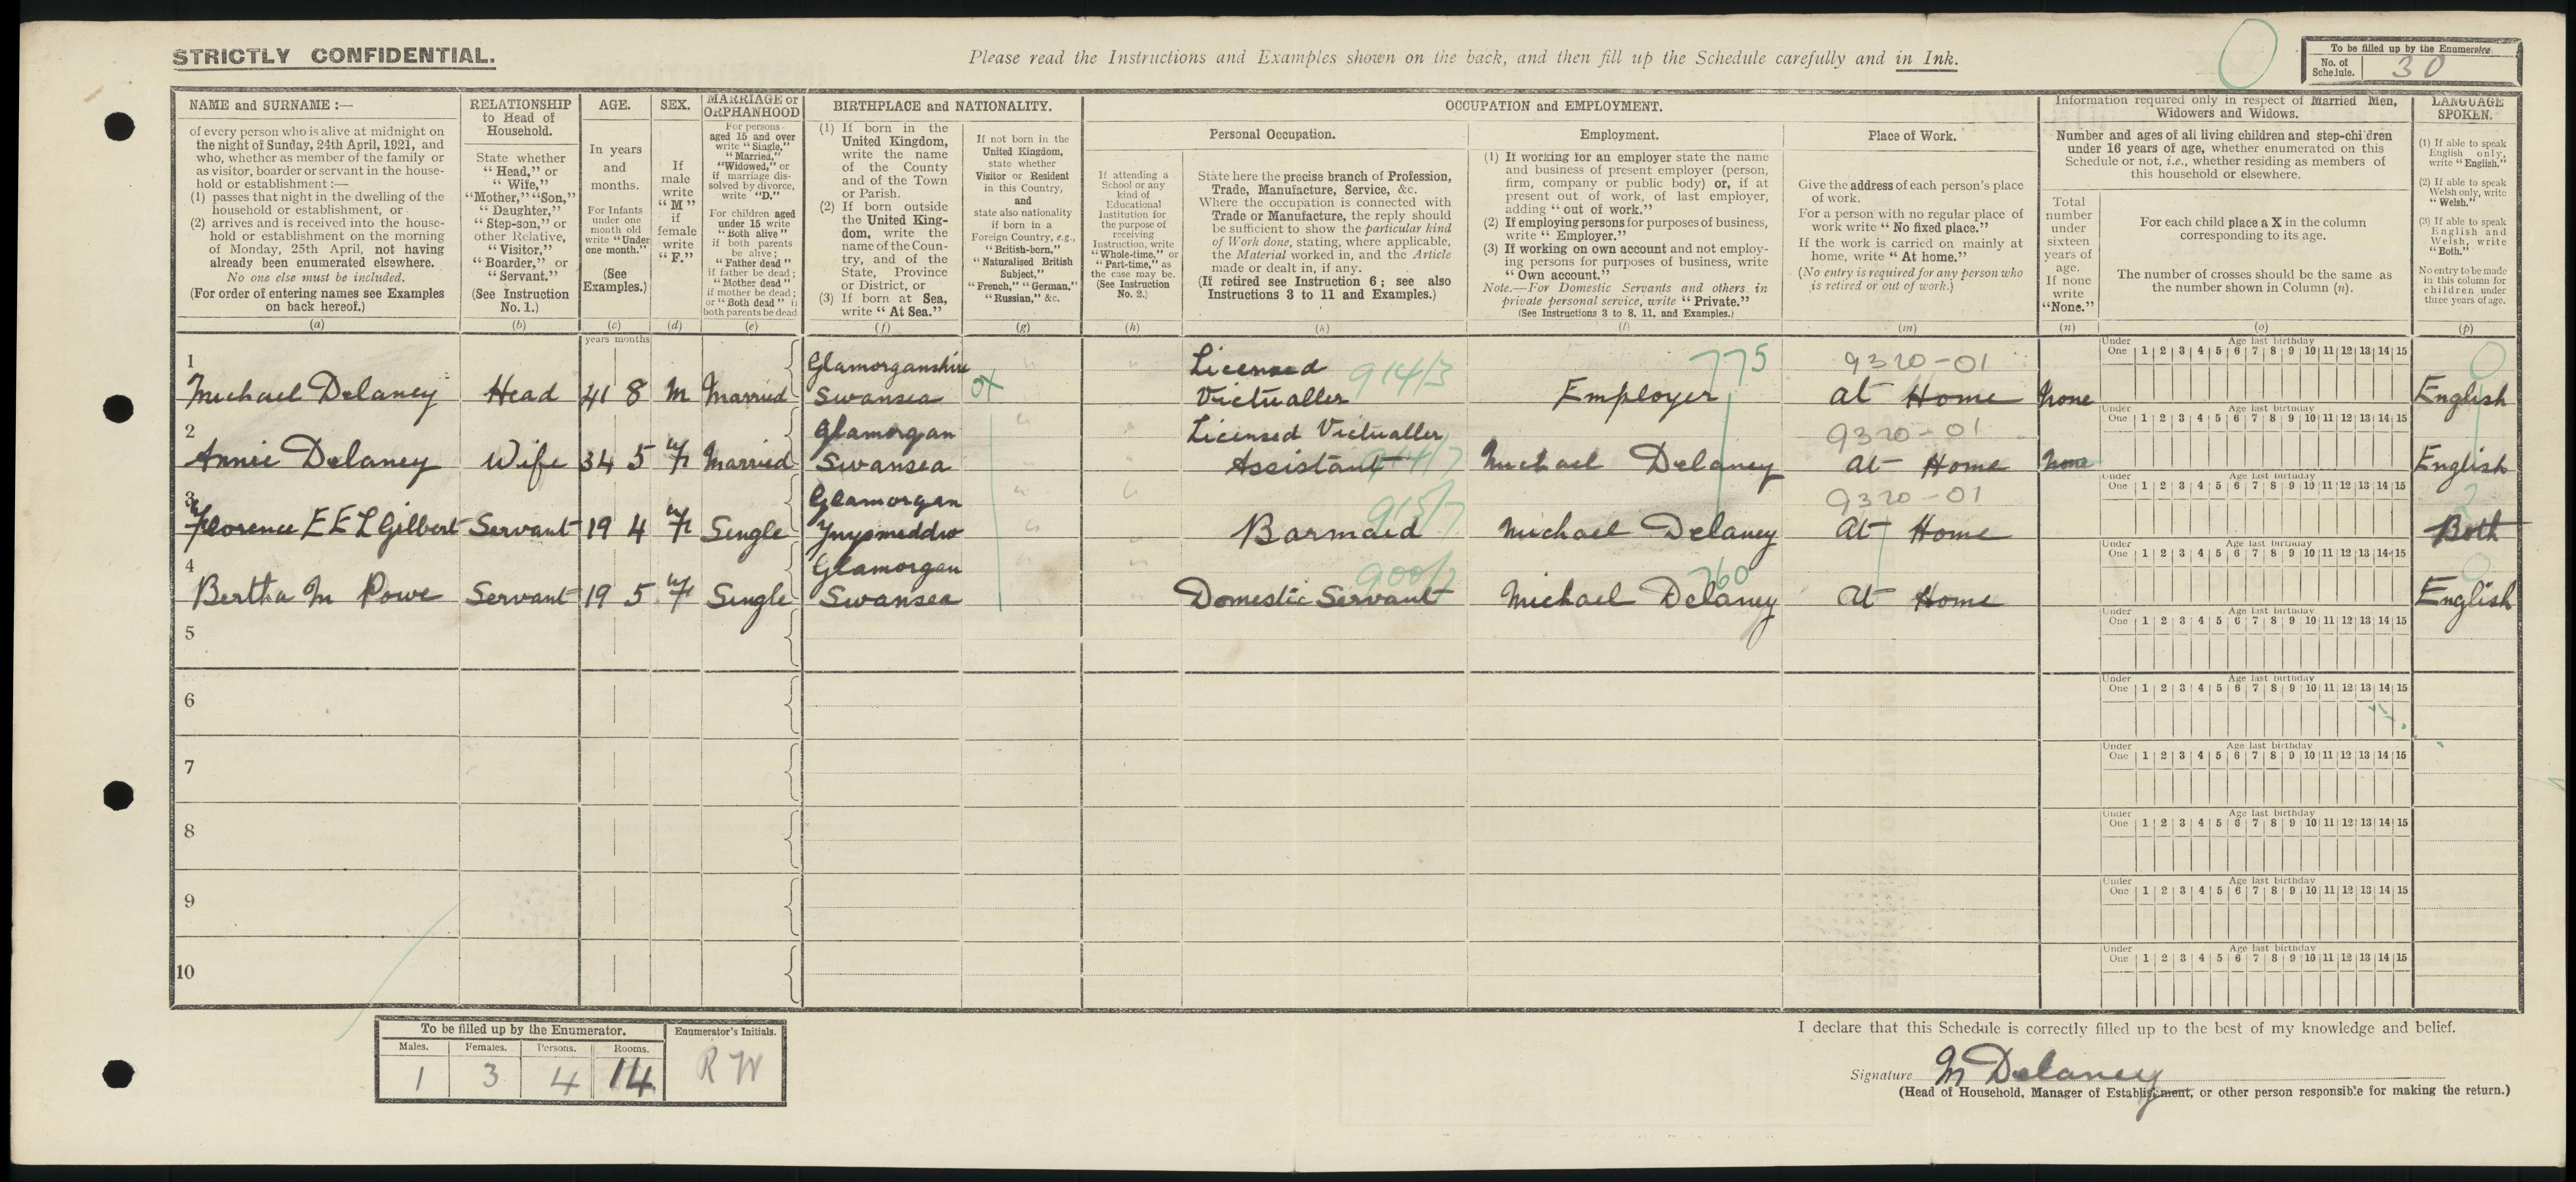 STRICTLY CONFIDENTIAL.
Please read the Instructions and Examples shown on the back, and then fill up the Schedule carefully and in Ink.
To be filled up by the Enumerator.
No. of Schedule. 30
NAME and SURNAME :—
of every person who is alive at midnight on
the night of Sunday, 24th April, 1921, and
who, whether as member of the family or
as visitor, boarder or servant in the house-
hold or establishment :—
(1) passes that night in the dwelling of the
household or establishment, or
(2) arrives and is received into the house-
hold or establishment on the morning
of Monday, 25th April, not having
already been enumerated elsewhere.
No one else must be included.
(For order of entering names see Examples
on back hereof.)
(a)
RELATIONSHIP
to Head of
Household.
State whether
"Head," or
"Wife,"
"Mother," "Son,"
"Daughter,"
"Step-son," or
other Relative,
"Visitor,"
"Boarder," or
"Servant."
(See Instruction
No. 1.)
(b)
AGE.
In years
and
months.
For Infants
under one
month old
write "Under
one month."
(See
Examples.)
(c)
SEX.
If
male
write
"M"
if
female
write
"F."
(d)
MARRIAGE or
ORPHANHOOD
For persons
aged 15 and over
write "Single,"
"Married,"
"Widowed," or
if marriage dis-
solved by divorce,
write "D."
For children aged
under 15 write
"Both alive"
if both parents
be alive;
"Father dead"
if father be dead;
"Mother dead"
if mother be dead;
or "Both dead" if
both parents be dead
(e)
BIRTHPLACE and NATIONALITY.
(1) If born in the
United Kingdom,
write the name
of the County
and of the Town
or Parish.
(2) If born outside
the United King-
dom, write the
name of the Coun-
try, and of the
State, Province
or District, or
(3) If born at Sea,
write "At Sea."
(f)
If not born in the
United Kingdom,
state whether
Visitor or Resident
in this Country,
and
state also nationality
if born in a
Foreign Country, e.g.,
"British-born,"
"Naturalised British
Subject,"
"French," "German,"
"Russian," &c.
(g)
OCCUPATION and EMPLOYMENT.
If attending a
School or any
kind of
Educational
Institution for
the purpose of
receiving
Instruction, write
"Whole-time," or
"Part-time," as
the case may be.
(See Instruction
No. 2.)
(h)
Personal Occupation.
State here the precise branch of Profession,
Trade, Manufacture, Service, &c.
Where the occupation is connected with
Trade or Manufacture, the reply should
be sufficient to show the particular kind
of Work done, stating, where applicable,
the Material worked in, and the Article
made or dealt in, if any.
(If retired see Instruction 6; see also
Instructions 3 to 11 and Examples.)
(k)
Employment.
(1) If working for an employer state the name
and business of present employer (person,
firm, company or public body) or, if at
present out of work, of last employer,
adding "out of work."
(2) If employing persons for purposes of business,
write "Employer."
(3) If working on own account and not employ-
ing persons for purposes of business, write
"Own account."
Note.—For Domestic Servants and others in
private personal service, write "Private."
(See Instructions 3 to 8, 11, and Examples.)
(l)
Place of Work.
Give the address of each person's place
of work.
For a person with no regular place of
work write "No fixed place."
If the work is carried on mainly at
home, write "At home."
(No entry is required for any person who
is retired or out of work.)
(m)
Information required only in respect of Married Men,
Widowers and Widows.
Number and ages of all living children and step-children
under 16 years of age, whether enumerated on this
Schedule or not, i.e., whether residing as members of
this household or elsewhere.
Total
number
under
sixteen
years of
age.
If none
write
"None."
(n)
For each child place a X in the column
corresponding to its age.
The number of crosses should be the same as
the number shown in Column (n).
(o)
LANGUAGE
SPOKEN.
(1) If able to speak
English only,
write "English."
(2) If able to speak
Welsh only, write
"Welsh."
(3) If able to speak
English and
Welsh, write
"Both."
No entry to be made
in this column for
children under
three years of age.
(p)
years months
Under One Age last birthday 1 2 3 4 5 6 7 8 9 10 11 12 13 14 15
1 Glamorganshire Licensed 914/3 775 9320-01
Michael Delaney Head 41 8 M Married Swansea ot Victualler Employer at Home None English
Under One Age last birthday 1 2 3 4 5 6 7 8 9 10 11 12 13 14 15
2 Glamorgan Licensed Victualler 9320-01
Annie Delaney Wife 34 5 F Married Swansea Assistant 914/7 Michael Delaney At Home None English
Under One Age last birthday 1 2 3 4 5 6 7 8 9 10 11 12 13 14 15
3 Glamorgan 915/7 9320-01
Florence E E L Gilbert Servant 19 4 F Single Ynysmeddw Barmaid Michael Delaney At Home Both
Under One Age last birthday 1 2 3 4 5 6 7 8 9 10 11 12 13 14 15
4 Glamorgan 900/2 760
Bertha M Powe Servant 19 5 F Single Swansea Domestic Servant Michael Delaney At Home English
Under One Age last birthday 1 2 3 4 5 6 7 8 9 10 11 12 13 14 15
5
Under One Age last birthday 1 2 3 4 5 6 7 8 9 10 11 12 13 14 15
6
Under One Age last birthday 1 2 3 4 5 6 7 8 9 10 11 12 13 14 15
7
Under One Age last birthday 1 2 3 4 5 6 7 8 9 10 11 12 13 14 15
8
Under One Age last birthday 1 2 3 4 5 6 7 8 9 10 11 12 13 14 15
9
Under One Age last birthday 1 2 3 4 5 6 7 8 9 10 11 12 13 14 15
10
To be filled up by the Enumerator. Enumerator's Initials.
Males. Females. Persons. Rooms.
1 3 4 14 R W
I declare that this Schedule is correctly filled up to the best of my knowledge and belief.
Signature M Delaney
(Head of Household, Manager of Establishment, or other person responsible for making the return.)